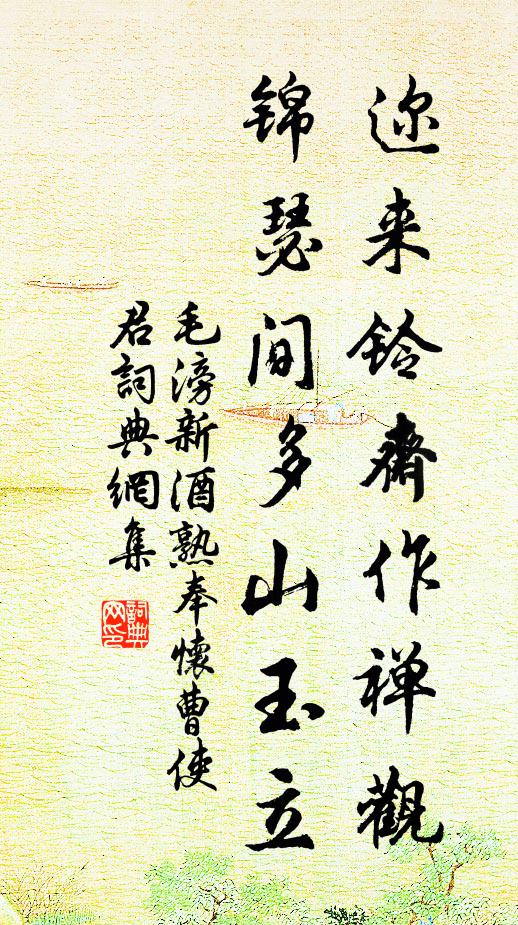 迩来铃齋作禅觀
锦瑟间多山玉立
毛滂新酒熟奉懷曹使
君詞典網集
詞典网印